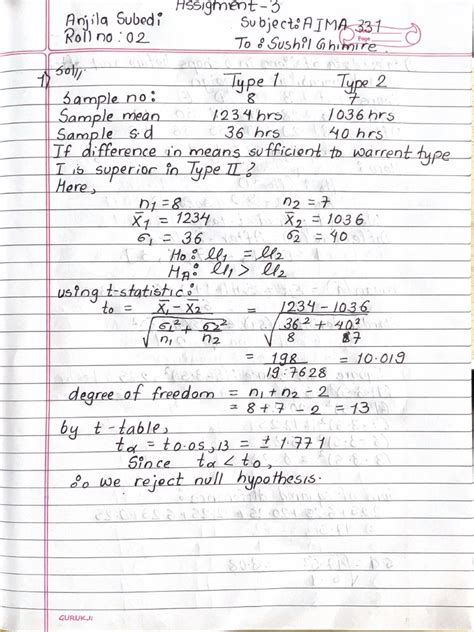 Assigment-3
Anjila Subedi Subject: AIMA 331
Roll no: 02 To: Sushil Ghimire
Page
1) Soln,
Type 1 Type 2
Sample no: 8 7
Sample mean 1234 hrs 1036 hrs
Sample s.d 36 hrs 40 hrs
If difference in means sufficient to warrent type
I is superior in Type II?
Here,
n1 = 8 n2 = 7
X̄1 = 1234 X̄2 = 1036
σ1 = 36 σ2 = 40
H0: μ1 = μ2
HA: μ1 > μ2
using t-statistic:
t0 = (X̄1 - X̄2) / √(σ1²/n1 + σ2²/n2) = (1234 - 1036) / √(36²/8 + 40²/7)
= 198 / 19.7628 = 10.019
degree of freedom = n1 + n2 - 2
= 8 + 7 - 2 = 13
by t-table,
tα = t0.05,13 = ± 1.771
Since tα < t0,
∴ we reject null hypothesis.
GURUKJI